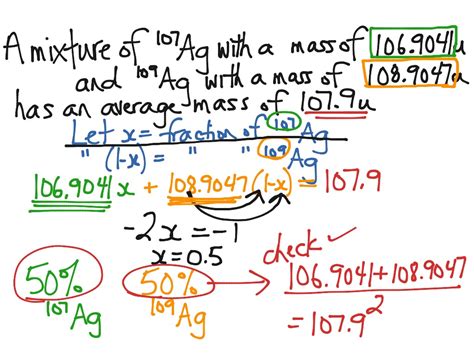 A mixture of ¹⁰⁷Ag with a mass of 106.9041u
and ¹⁰⁹Ag with a mass of 108.9047u
has an average mass of 107.9u
Let x = fraction of ¹⁰⁷Ag
" (1-x) = " " ¹⁰⁹Ag
106.9041x + 108.9047(1-x) = 107.9
-2x = -1
x = 0.5
check ✓
50% ¹⁰⁷Ag
50% ¹⁰⁹Ag
106.9041+108.9047
2
= 107.9